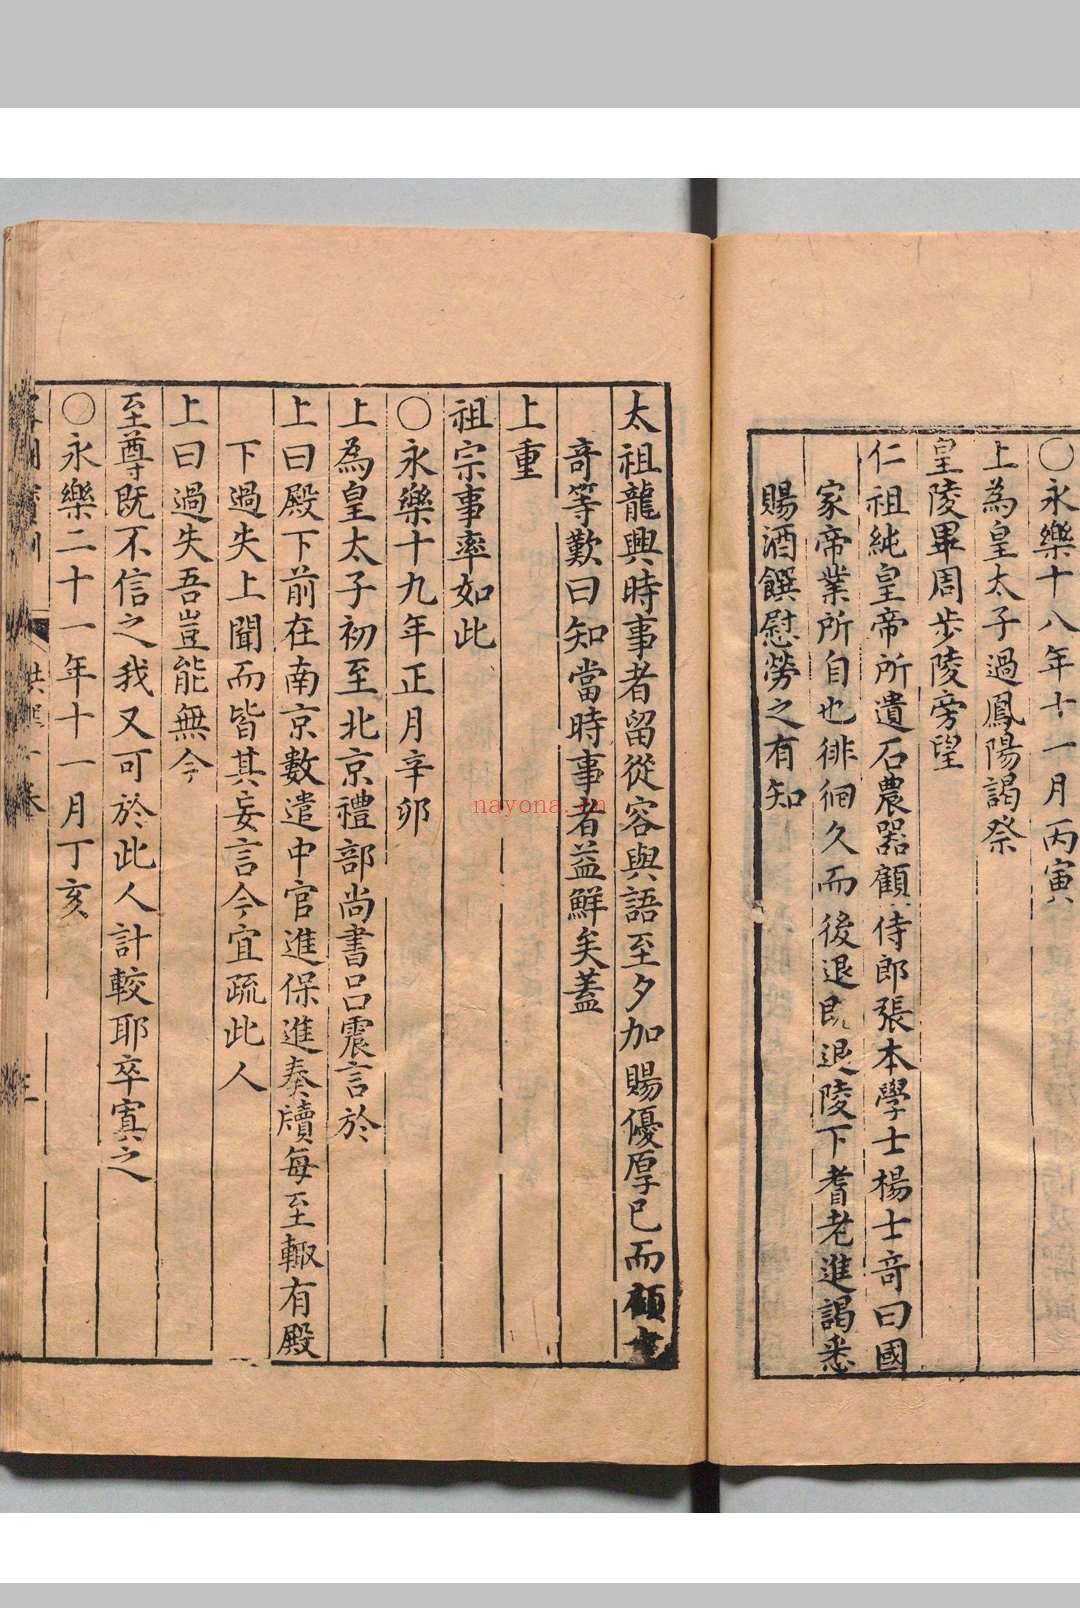 〇永樂十八年十一月丙寅
上為皇太子過鳳陽謁祭
皇陵畢周步陵旁望
仁祖純皇帝所遺石農器顧侍郎張本學士楊士竒曰國
家帝業所自也徘徊久而後退既退陵下耆老進謁悉
賜酒饌慰勞之有知
太祖龍興時事者留從容與語至夕加賜優厚已而顧士
竒等歎曰知當時事者益鮮矣蓋
上重
祖宗事率如此
〇永樂十九年正月辛卯
上為皇太子初至北京禮部尚書呂震言於
上曰殿下前在南京數遣中官進保進奏牘每至輙有殿
下過失上聞而皆其妄言今宜疏此人
上曰過失吾豈能無今
至尊既不信之我又可於此人計較耶卒寘之
〇永樂二十一年十一月丁亥
nayona.cn